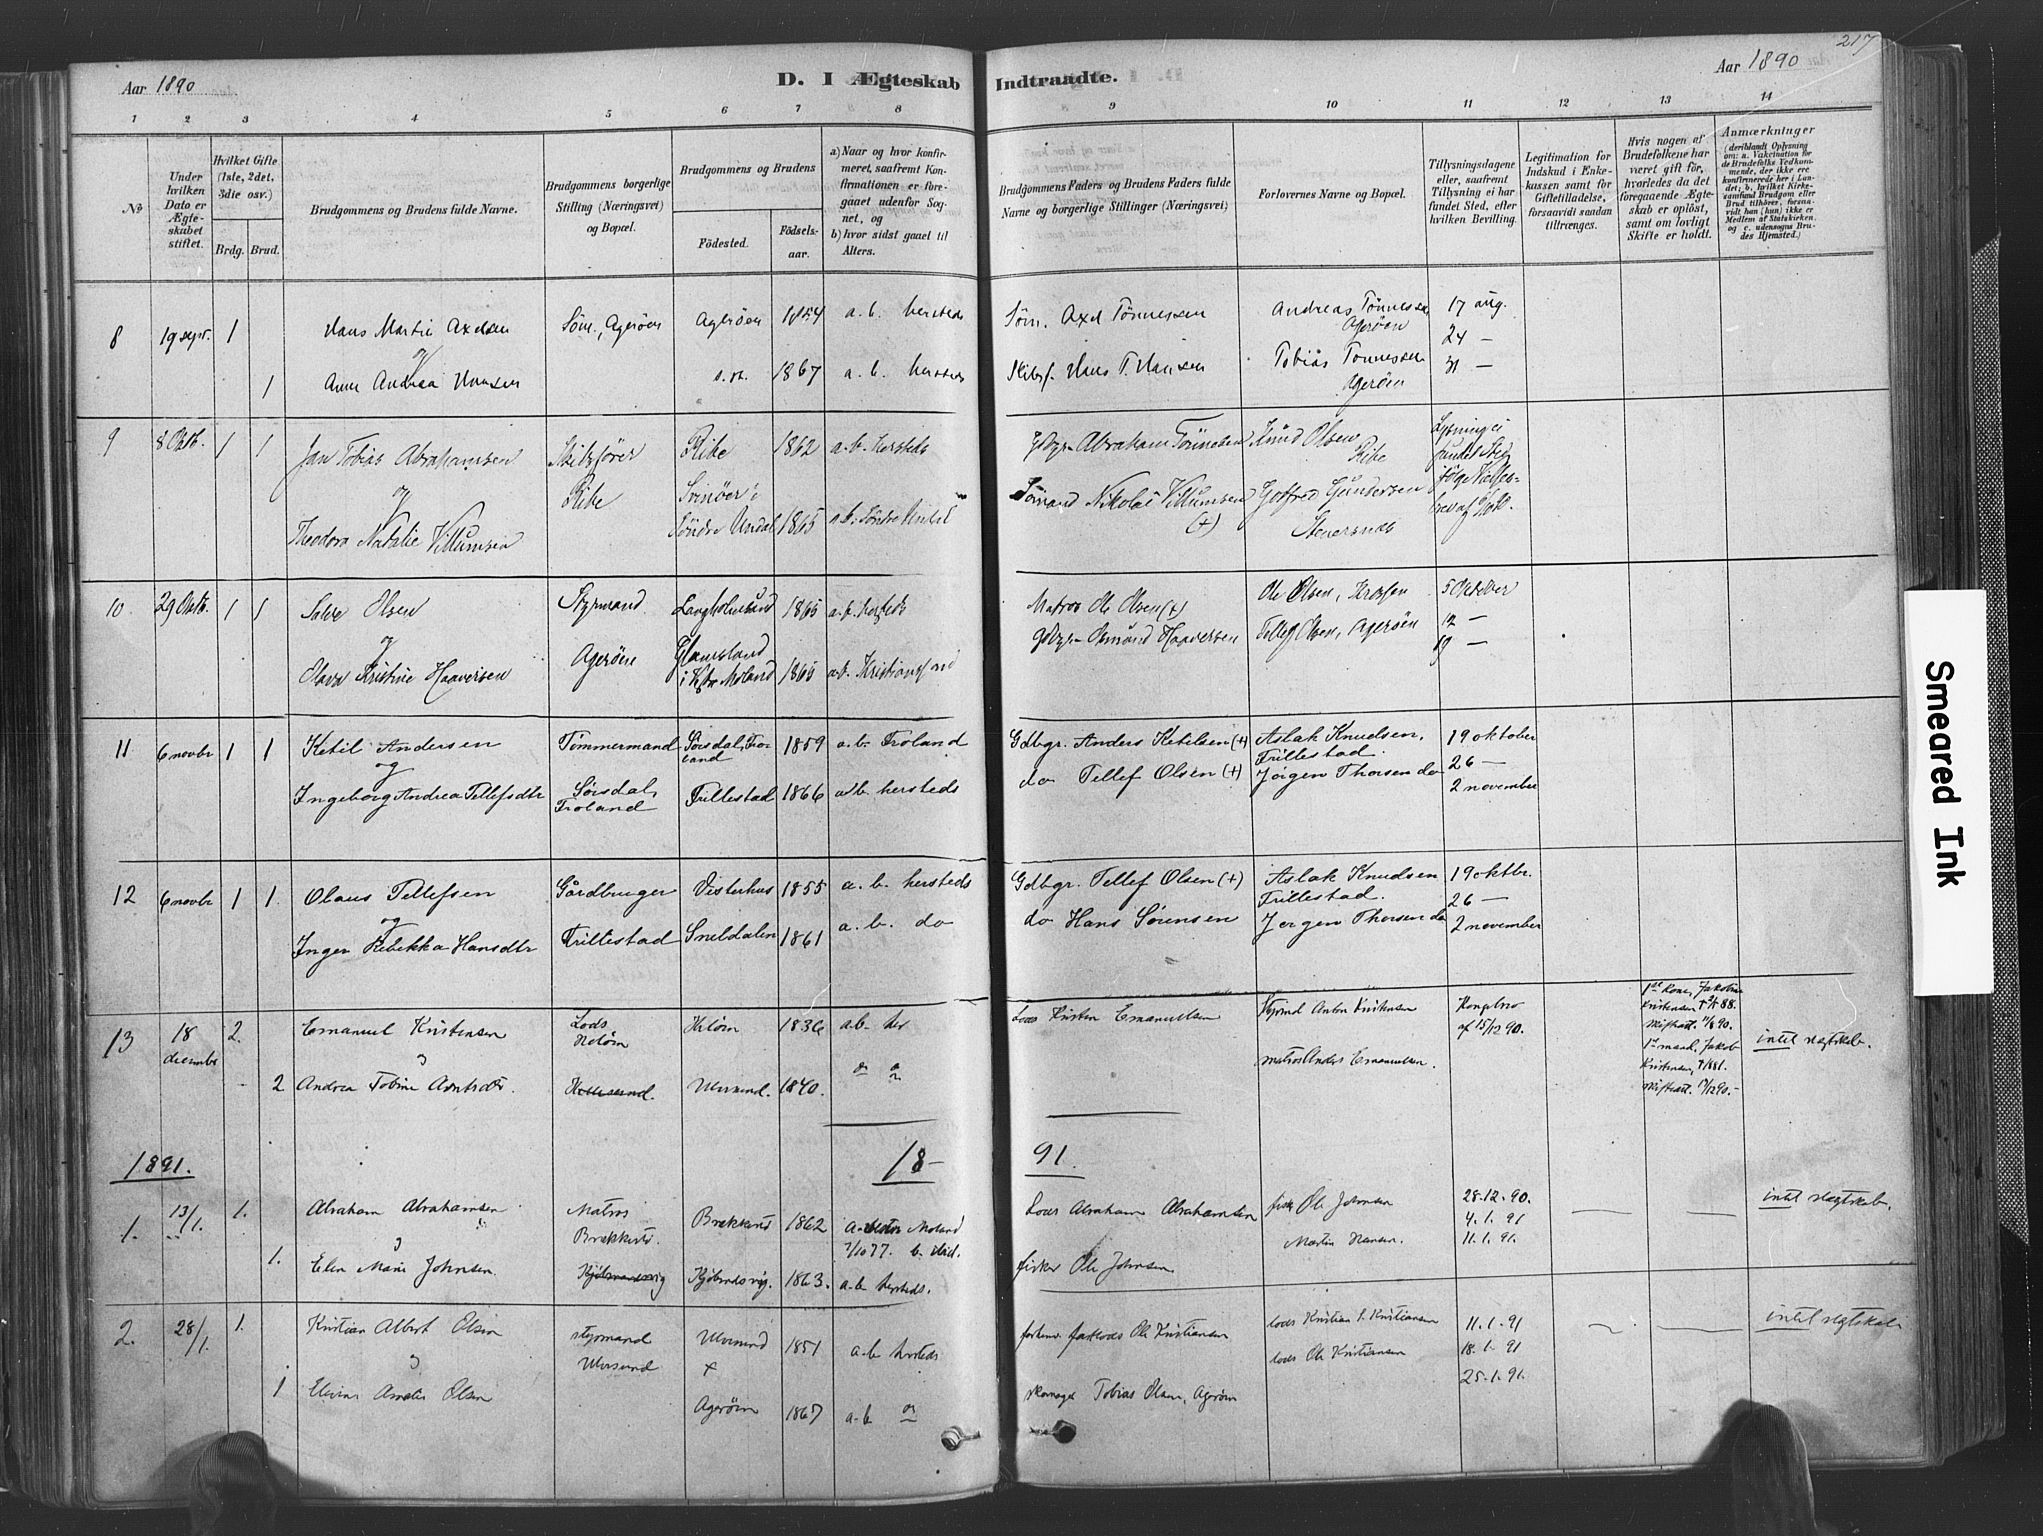 217
Aar 1890
D. I Ægteskab Indtraadte.
Aar 1890
1 2 3 4 5 6 7 8 9 10 11 12 13 14
No
Under hvilken Dato er Ægteskabet stiftet.
Hvilket Gifte (1ste, 2det, 3die osv.)
Brdg. Brud.
Brudgommens og Brudens fulde Navne.
Brudgommens borgerlige Stilling (Næringsvei) og Bopæl.
Brudgommens og Brudens
Födested. Födselsaar.
a) Naar og hvor konfirmeret, saafremt Konfirmationen er foregaaet udenfor Sognet, og
b) hvor sidst gaaet til Alters.
Brudgommens Faders og Brudens Faders fulde Navne og borgerlige Stillinger (Næringsvei)
Forlovernes Navne og Bopæl.
Tillysningsdagene eller, saafremt Tillysning ei har fundet Sted, efter hvilken Bevilling.
Legitimation for Indskud i Enkekassen samt for Giftetilladelse, forsaavidt saadan tiltrænges.
Hvis nogen af Brudefolkene har været gift før, hvorledes da det foregaaende Ægteskab er oplöst, samt om lovligt Skifte er holdt.
Anmærkninger (deriblandt Oplysning om: a. Vakcination for de Brudefolks Vedkommende, der ikke ere konfirmerede her i Landet; b. hvilket Kirkesamfund Brudgom eller Brud tilhörer, forsaavidt han (hun) ikke er Medlem af Statskirken, og c. udensogns Brudes Hjemsted.)
8 19 sept. 1 Hans Martin Axelsen Søm., Agerøen Agerøen 1854 a. b. hersteds Søm. Axel Tønnessen Andreas Tønnessen Agerøen 17 aug.
og 24 —
1 Anne Andrea Hansen s. st. 1867 a. b. hersteds Skibsf. Hans T. Hansen Tobias Tønnessen Agerøen 31 —
9 8 Oktb. 1 1 Jan Tobias Abrahamsen Skibsfører Ribe 1862 a. b. hersteds Gdbgr. Abraham Tønnesen Knud Olsen Ribe Lysning ei fundet Sted
og Ribe
Theodora Natalie Villumsen Svinöer i Söndre Undal 1865 a. b. Søndre Undal Sömand Nikolai Villumsen (+) Gotfred Gundersen
10 29 Oktb. 1 1 Salve Olsen Styrmand Langholmsund 1865 a. b. hersteds Matros Ole Olsen (+) Ole Olsen, 5 Oktober
og Agerøen 12 —
Olava Kristine Haaversen i Vestre Moland 1865 a. b. Kristiansand Gdbgr. Osmund Haaversen Tellef Olsen, Agerøen 19 —
11 6 novbr 1 1 Ketil Andersen Tømmermand Sørsdal, Froland 1859 a. b. Froland Gdbgr. Anders Ketilsen (+) Aslak Knudsen, Trillestad. 19 oktober
og 26 —
Ingeborg Andrea Tellefsdtr Sørsdal, Froland Trillestad 1866 a. b. hersteds do Tellef Olsen (+) Jörgen Thorsen do 2 november
12 6 novbr 1 1. Olaus Tellefsen Gårdbruger Visterhus 1855 a. b. hersteds Gdbgr. Tellef Olsen (+) Aslak Knudsen Trillestad. 19 oktbr.
og 26 —
Inger Rebekka Hansdtr Trillestad Sneldalen 1861 a. b. do do Hans Sørensen Jørgen Thorsen do 2 november
13 18 december 2. Emanuel Kristensen Lods 1836 a b. her Lods Kristen Emanuelsen Styrmd Anton Kristensen Kongebrev af 15/12 90. 1ste Kone, Jakobine Kristensen intet slægtskab.
2 Andrea Tobine Ulvsund. 1840. matros Anders Emanuelsen. 1ste mand, Jakob Kristensen, † 1881.
1891. 18- 91.
1. 13/1. 1. Abraham Abrahamsen Matros Brækkestø 1862 Moland 7/10 77. b. ibid. Lods Abraham Abrahamsen fisker Ole Johnsen 28.12.90. — — intet slægtskab.
Brækkestø. Martin Hansen. 4.1.91
11.1.91.
1. Elen Marie Johnsen. Kjøbmandsvig Kjøbmdsvig. 1863. a. b. hersteds. fisker Ole Johnsen
2. 28/1. 1. Kristian Albert Olsen styrmand Ulvsund 1851 a b hersteds Ole Kristiansen lods Kristian S. Kristiansen 11.1.91 — — intet slægtskab
Ulvsund lods Ole Kristiansen 18.1.91
1 Elvine Amalie Olsen Agerøen 1867 a. b. Tobias Olsen, Agerøen 25.1.91.
Smeared Ink